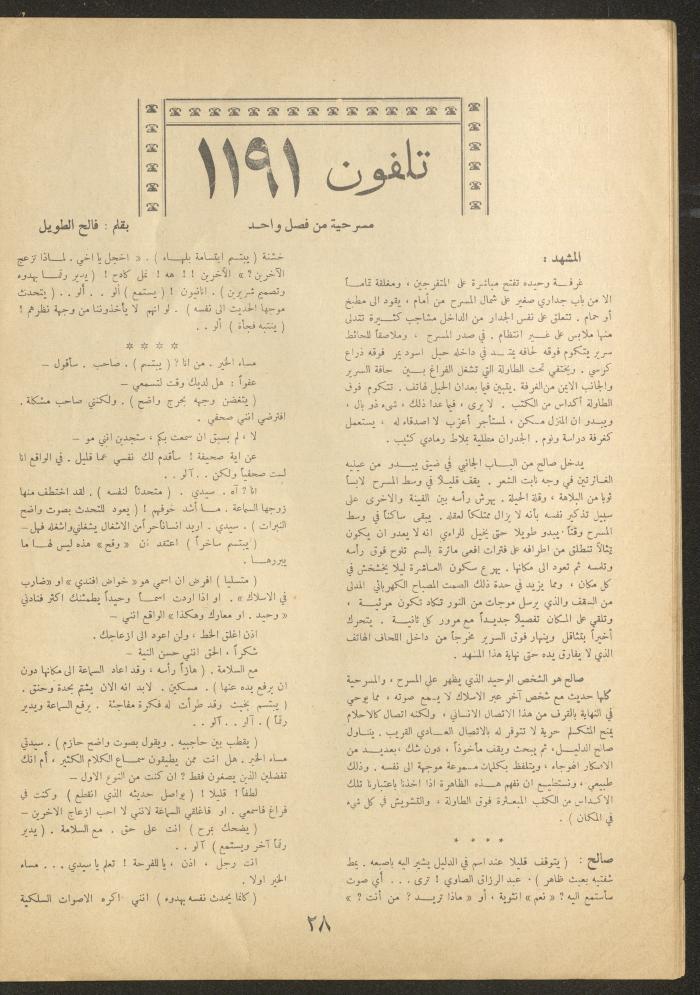 تلفون ١١٩١
مسرحية من فصل واحد
بقلم : فالح الطويل
المشهد :
غرفـــة وحيده تفتح مباشرة على المتفرجين ، ومغلقة تمامــاً
الا من باب جداري صغير على شمال المسرح من أمام ، يقود الى مطبخ
أو حمام . تتعلق على نفس الجدار من الداخل مشاجب كثـــيرة تتدلى
منها ملابس على غـــير انتظام . في صدر المسرح ، وملاصقاً للحائط
سرير يتكوم فوقه لحافه يمتـــد في داخله حبل اسود يمر فوقه ذراع
كرسي . ويختفي تحت الطاولة التي تشغل الفراغ بـــين حافة السرير
والجانب الايمن من الغرفة . يتبين فيما بعد ان الحبل لهاتف . تتكوم فوق
الطاولة أكداس من الكتب . لا يرى ، فيما عدا ذلك ، شيء ذو بال ،
ويبدو ان المنزل مسكن ، لمستأجر أعزب لا اصدقاء له ، يستعمل
كغرفة دراسة ونوم . الجدران مطلية بملاط رمادي كئيب .
يدخل صالح من البـــاب الجانبي في ضيق يبـــدو من عينيه
الغائرتين في وجه نابت الشعر . يقف قليلاً في وسط المسرح لابساً
ثوباً من البلاهة ، وقلة الحيلة . يهرش رأسه بين الفينة والاخرى على
سبيل تذكير نفسه بأنه لا يزال ممتلكاً لعقله . يبقى ساكناً في وسط
المسرح وقتاً يبدو طويلا حتى يخيل للرائي انه لا يعدو ان يكون
تمثالاً تنطلق من اطرافه على فترات افعى مائرة بالسم تلوح فوق رأسه
ونفسه ثم تعود الى مكانها . يهرع سكون العـاشرة ليلا يخشخش في
كل مكان ، ومما يزيد في حدة ذلك الصمت المصباح الكهربائي المدلى
من السقف والذي يرسل موجات من النور تكاد تكون مرئيـــة ،
وتلقي على المكان تفصيلا جديـــداً مع مرور كل ثانيـــة . يتحرك
أخيراً بتثاقل وينهار فوق السرير مخرجاً من داخل اللحاف الهاتف
الذي لا يفارق يده حتى نهاية هذا المشهد .
صالح هو الشخص الوحيد الذي يظهر على المسرح ، والمسرحية
كلها حديث مع شخص آخر عبر الاسلاك لا يســـمع صوته ، مما يوحي
في النهاية بالقرف من هذا الاتصال الانساني ، ولكنه اتصال كالاحلام
يمنح المتكلم حرية لا تتوفر له بالاتصال العـــادي القريب . يتنـــاول
صالح الدليـــل ، ثم يبحث ويقف مأخوذاً ، دون شك ، بعديـــد من
الافكار الهوجاء ، ويتلفظ بكلمات مسموعة موجهة الى نفسه . وذلك
طبيعي ، ونستطيع ان نفهم هـــذه الظاهرة اذا اخذنا باعتبارنا تلك
الاكداس من الكتب المبعـثرة فوق الطاولة ، والتشويش في كل شيء
في المكان ) .
* * * *
صالح : ( يتوقف قليلا عند اسم في الدليل يشير اليه باصبعه . يمط
شفتيه بعبث ظاهر ) . عبد الرزاق الصاوي ! ترى . . . أي صوت
سأستمع اليه ? « نعم » انثوية ، أو « ماذا تريـــد ? من أنت ? »
خشنة ( يبتسم ابتسامة بلهـــاء ) . « اخجل يا اخي . لمـــاذا تزعج
الآخرين ? » الآخرين !! هه ! نمل كادح ! ( يدير رقمـــا بهدوء
وتصميم شريرين ) . انانيون ! ( يستمع ) ألو . . ألو . . ( يتحدث
موجها الحديث الى نفسه ) . لو انهم لا يأخذوننا من وجهة نظرهم !
( ينتبه فجأة ) ألو . .
* * * *
مساء الخير . من انا ? ( يبتسم ) . صاحب . سأقول —
عفواً : هل لديك وقت لتسمعي —
( يتغضن وجهه بحرج واضح ) . ولكنني صاحب مشكلة .
افترضي انني صحفي .
لا ، لم يسبق ان سمعت بكم ، ستجدين انني مو —
عن اية صحيفة ! سأقدم لك نفسي عما قليل . في الواقع انا
لست صحفياً ولكن . . آلو . .
انا ? آه . سيدي . ( متحدثاً لنفسه ) . لقد اختطف منها
زوجها السماعة . مـــا أشد خوفهم ! ( يعود للتحدث بصوت واضح
النبرات ) . سيدي . اريد انساناً آخر أمن الاشغال يشغلني واشغله فهل —
( يبتسم ساخراً ) اعتقد ان « وقح » هذه ليس لهـــا ما
يبررهـــا .
( متسليا ) افرض ان اسمي هو « خواض افندي » او « ضارب
في الاسلاك » . او اذا اردت اسمـــاً وحيداً يطمئنك اكثر فنادني
« وحيد . او معارك وهكذا » الواقع انني —
اذن اغلق الخط ، ولن اعود الى ازعاجك .
شكراً ، الحق انني حسن النية —
مع السلامة . ( هازاً رأسه ، وقد اعاد السماعة الى مكانها دون
ان يرفع يده عنها ) . مسكين . لابد انه الان يشتم بحدة وحنق .
( يبتسم بخبث وقد طرأت له فكرة مفاجئة . يرفع السماعة ويدير
رقماً ) . آلو . . آلو . .
( يقطب بين حاجبيه . ويقول بصوت واضح حازم ) . سيدتي
مساء الخير . هل انت ممن يطيقون سمـــاع الكلام الكثير ، أم انك
تفضلين الذين يصغون فقط ? ان كنت من النوع الاول —
لطفاً ! قليلا ! ( يواصل حديثه الذي انقطع ) وكنت في
فراغ فاسمعي . او فاغلقي السماعة لانني لا احب ازعاج الآخرين —
( يضحك بمرح ) انت على حق . مع السلامة . ( يدير
رقماً آخر ويستمع ) آلو . .
انت رجل ، اذن ، يا للفرحة ! تعلم يا سيدي . . . مساء
الخير اولا .
( كأنما يحدث نفسه بهدوء ) انني اكره الاصوات السلكية
٢٨